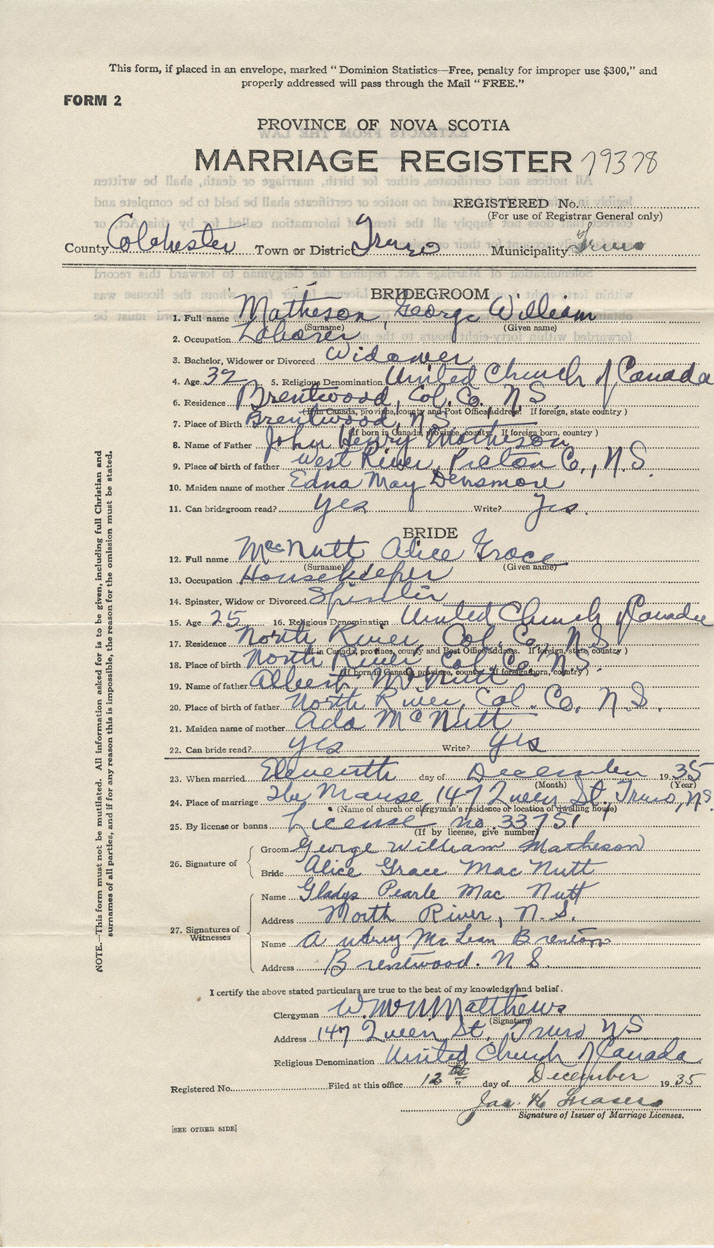 This form, if placed in an envelope, marked "Dominion Statistics—Free, penalty for improper use $300," and
properly addressed will pass through the Mail "FREE."
FORM 2
PROVINCE OF NOVA SCOTIA
MARRIAGE REGISTER 79378
REGISTERED No.
(For use of Registrar General only)
County Colchester Town or District Truro Municipality of Truro
BRIDEGROOM
1. Full name Matheson, George William
(Surname) (Given name)
2. Occupation Laborer
3. Bachelor, Widower or Divorced Widower
4. Age 32 5. Religious Denomination United Church of Canada
6. Residence Brentwood, Col. Co. NS
(If in Canada, province, county and Post Office address. If foreign, state country)
7. Place of Birth Brentwood, N.S.
(If born in Canada, province, county. If foreign born, country)
8. Name of Father John Henry Matheson
9. Place of birth of father West River, Pictou Co., N.S.
10. Maiden name of mother Edna May Densmore
11. Can bridegroom read? Yes Write? Yes.
BRIDE
12. Full name McNutt Alice Grace
(Surname) (Given name)
13. Occupation Housekeeper
14. Spinster, Widow or Divorced Spinster
15. Age 25 16. Religious Denomination United Church of Canada
17. Residence North River, Col. Co. N.S.
(If in Canada, province, county and Post Office address. If foreign, state country)
18. Place of birth North River, Col. Co. N.S.
(If born in Canada, province, county. If foreign born, country)
19. Name of father Albert McNutt
20. Place of birth of father North River, Col. Co. N.S.
21. Maiden name of mother Ada McNutt
22. Can bride read? Yes Write? Yes
23. When married Eleventh day of December 1935
(Month) (Year)
24. Place of marriage The Manse, 147 Queen St. Truro, N.S.
(Name of church or clergyman's residence or location of dwelling house)
25. By license or banns License no. 33751
(If by license, give number)
26. Signature of
Groom George William Matheson
Bride Alice Grace Mac Nutt
27. Signatures of Witnesses
Name Gladys Pearle Mac Nutt
Address North River, N.S.
Name Aubrey McLean Brenton
Address Brentwood. N.S.
I certify the above stated particulars are true to the best of my knowledge and belief.
Clergyman Matthews
(Signature)
Address 147 Queen St. Truro NS
Religious Denomination United Church of Canada
Registered No. Filed at this office 12th day of December 1935
Jas. H. Fraser
Signature of Issuer of Marriage Licenses.
[SEE OTHER SIDE]
NOTE.—This form must not be mutilated. All information asked for is to be given, including full Christian and
surnames of all parties, and if for any reason this is impossible, the reason for the omission must be stated.